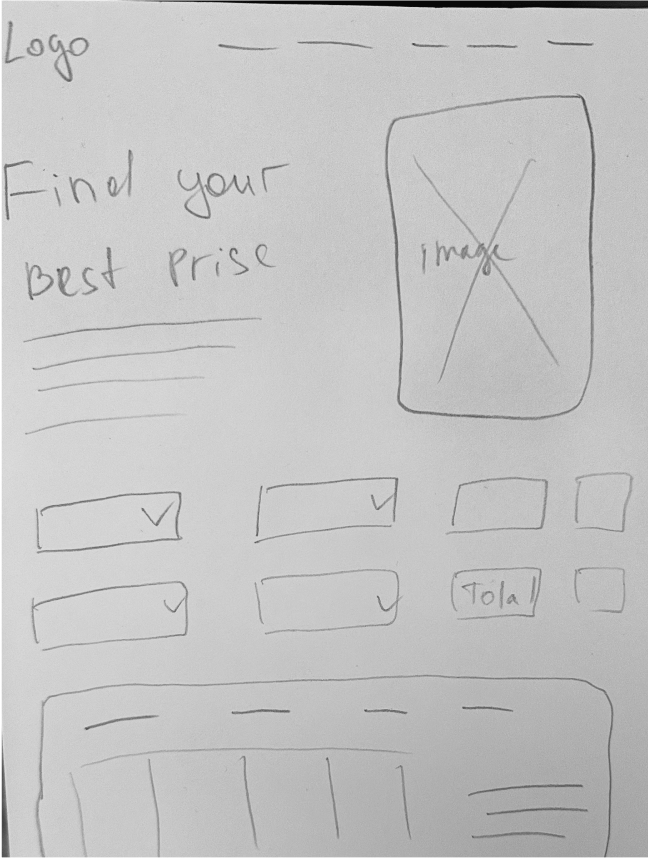 Logo
Find your
Best Prise
image
Total